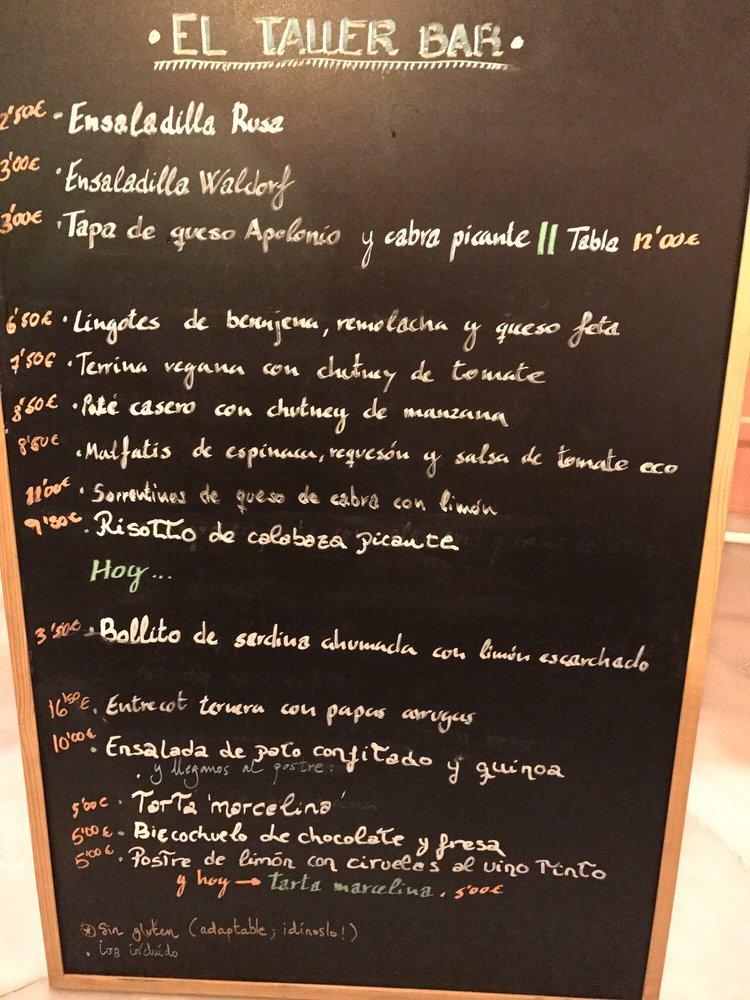 · EL TALLER BAR ·
2'50€ · Ensaladilla Rusa
3'00€ · Ensaladilla Waldorf
3'00€ · Tapa de queso Apolonio y cabra picante || Tabla 12'00€
6'50€ · Lingotes de berenjena, remolacha y queso feta
7'50€ · Terrina vegana con chutney de tomate
8'50€ · Paté casero con chutney de manzana
8'50€ · Malfatis de espinaca, requesón y salsa de tomate eco
11'00€ · Sorrentinos de queso de cabra con limón
9'50€ · Risotto de calabaza picante
Hoy...
3'50€ · Bollito de sardina ahumada con limón escarchado
16'50€ · Entrecot ternera con papas arrugas
10'00€ · Ensalada de pato confitado y quinoa
· y llegamos al postre:
5'00€ · Tarta 'marcelina'
5'00€ · Biscochuelo de chocolate y fresa
5'00€ · Postre de limón con ciruelas al vino tinto
y hoy → tarta marcelina. 5'00€
Sin gluten (adaptable; ¡dínoslo!)
· iva incluido